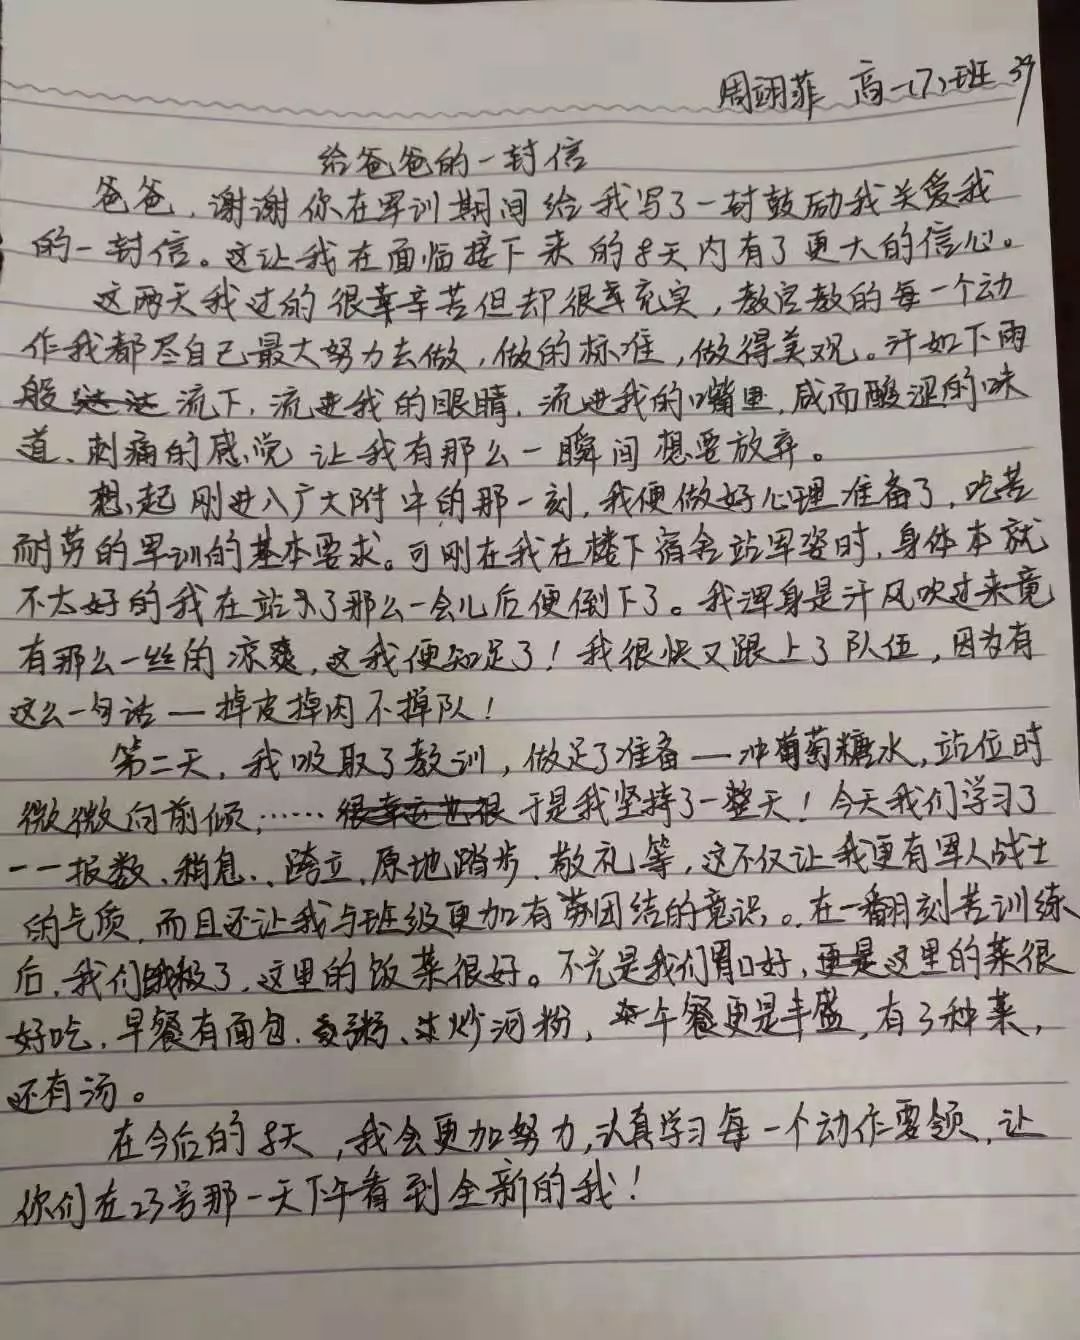 周翊菲 高一(7)班 37
给爸爸的一封信
爸爸,谢谢你在军训期间给我写了一封鼓励我关爱我
的一封信。这让我在面临接下来的8天内有了更大的信心。
这两天我过的很辛苦但却很充实,教官教的每一个动
作我都尽自己最大努力去做,做的标准,做得美观。汗如下雨
般流下,流进我的眼睛,流进我的嘴里,咸而酸涩的味
道、刺痛的感觉让我有那么一瞬间想要放弃。
想起刚进入广大附中的那一刻,我便做好心理准备了,吃苦
耐劳的军训的基本要求。可刚在我在楼下宿舍站军姿时,身体本就
不太好的我在站了那么一会儿后便倒下了。我浑身是汗风吹过来竟
有那么一丝的凉爽,这我便知足了!我很快又跟上了队伍,因为有
这么一句话—掉皮掉肉不掉队!
第二天,我吸取了教训,做足了准备—冲葡萄糖水,站位时
微微向前倾,……于是我坚持了一整天!今天我们学习了
一一报数、稍息、跨立、原地踏步、敬礼等,这不仅让我更有军人战士
的气质,而且还让我与班级更加有团结的意识。在一翻刻苦训练
后,我们饿极了,这里的饭菜很好。不光是我们胃口好,这里的菜很
好吃,早餐有面包、粥、炒河粉,午餐更是丰盛,有3种菜,
还有汤。
在今后的8天,我会更加努力,认真学习每一个动作要领,让
你们在23号那一天下午看到全新的我!